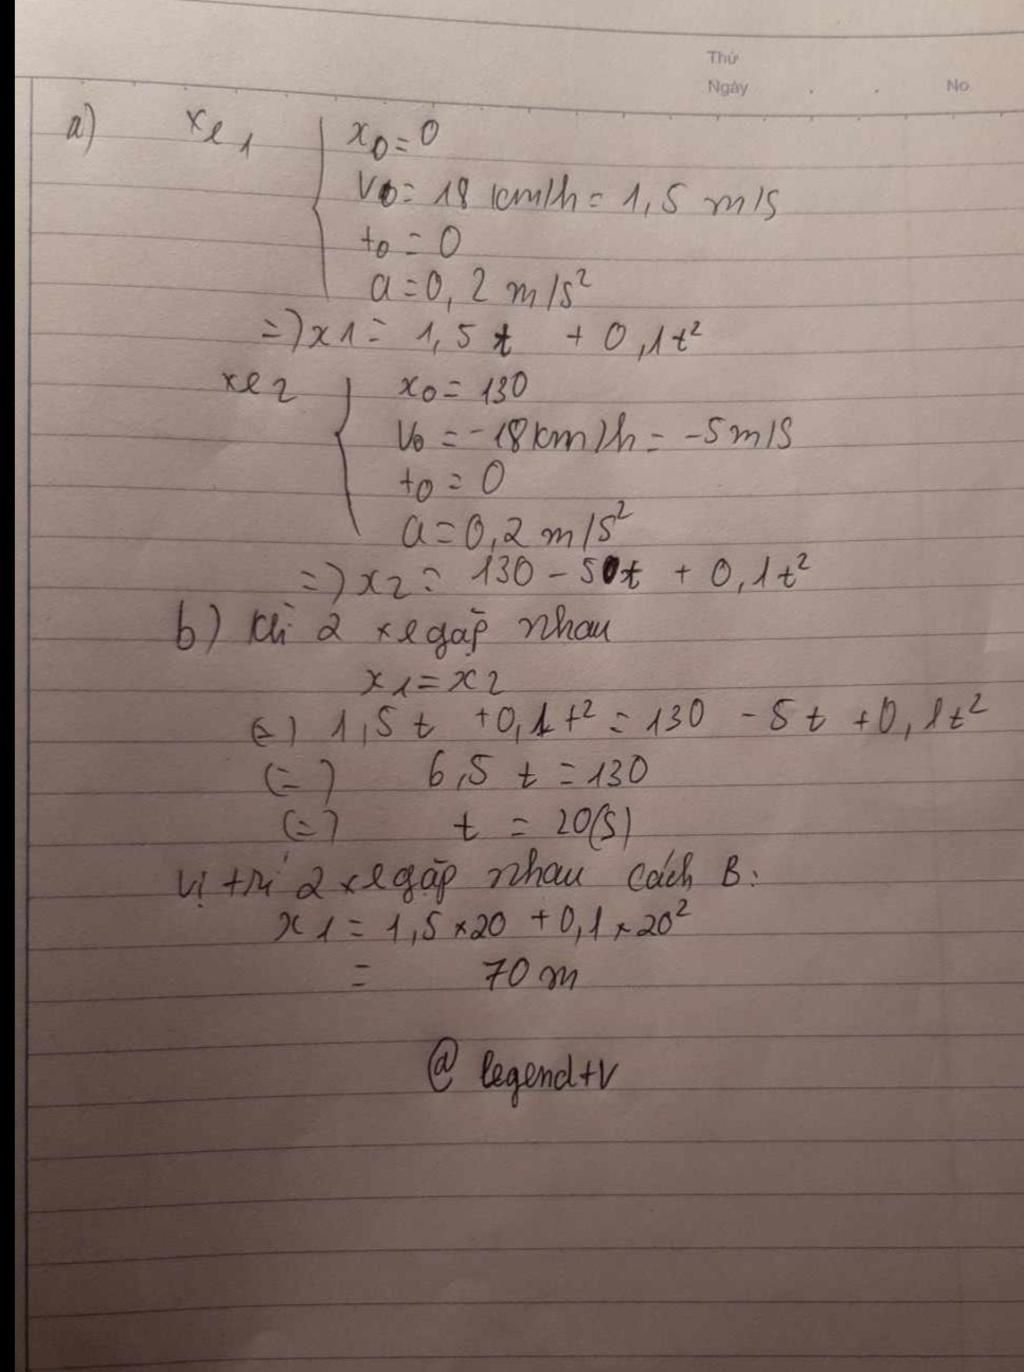 Thứ
Ngày . . No
a) xe1 x0=0
v0= 18 km/h = 1,5 m/s
t0 = 0
a=0,2 m/s²
=) x1 = 1,5 t + 0,1t²
xe2 x0 = 130
v0 = -18km/h = -5m/s
t0 = 0
a=0,2 m/s²
=) x2 = 130 - 5t + 0,1t²
b) Khi 2 xe gặp nhau
x1 = x2
(=) 1,5t +0,1t² = 130 - 5t +0,1t²
(=) 6,5 t = 130
(=) t = 20(s)
Vị trí 2 xe gặp nhau cách B:
x1 = 1,5×20 +0,1×20²
= 70 m
@ legend+v